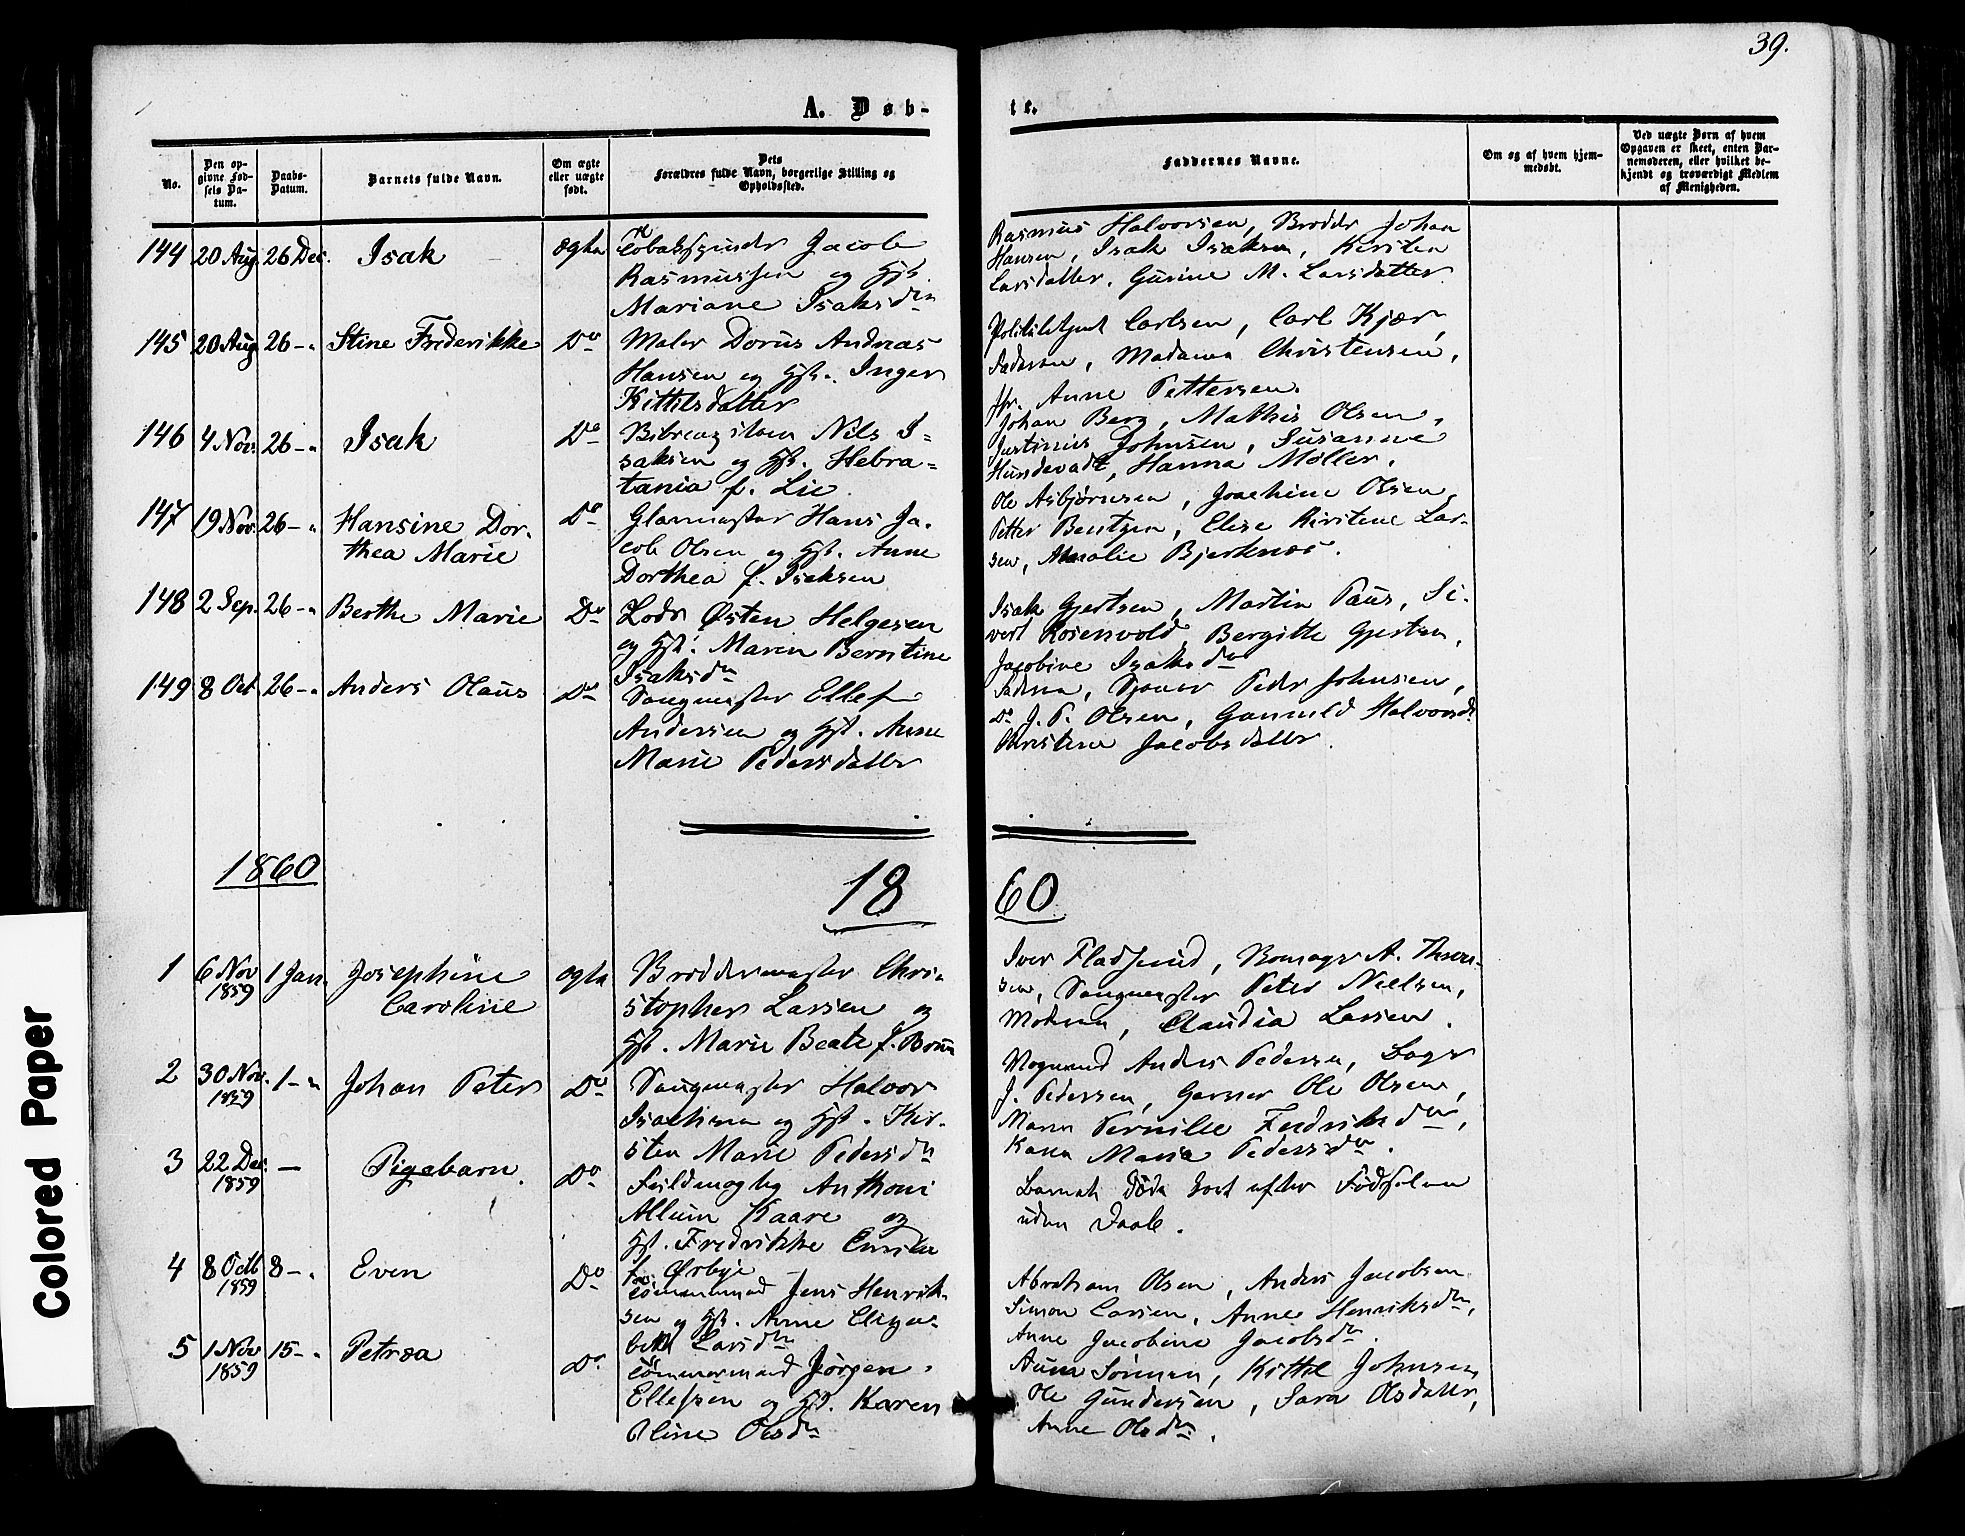 39.
A. Døb-
te.
No.
Den op-
givne Fød-
sels Da-
tum.
Daabs-
Datum.
Barnets fulde Navn.
Om ægte
eller uægte
født.
Dets
Forældres fulde Navn, borgerlige Stilling og
Opholdssted.
Faddernes Navne.
Om og af hvem hjem-
medøbt.
Ved uægte Børn af hvem
Opgaven er skeet, enten Bar-
nemoderen, eller hvilket be-
kjendt og troværdigt Medlem
af Menigheden.
144 20 Aug. 26 Dec. Isak ægte
Tobaksspinder Jacob
Rasmussen og Hst.
Mariane Isaksdtr
Rasmus Halvorsen, Brødr Johan
Hansen, Isak Isaksen, Kirsten
Larsdatter, Gurine M. Larsdatter
145 20 Aug 26 -". Stine Frederikke Do
Maler Dorus Andreas
Hansen og Hst. Inger
Kittilsdatter
Politibetjent Carlsen, Carl Kjær,
Faderen, Madame Christensen,
Jfr. Anne Pettersen.
146 4 Nov. 26 -". Isak Do
Nils I-
saksen og Hst. Hebra-
tania f. Lie.
Johan Berg, Mathis Olsen,
Justinius Johnsen, Susanne
Hundevadt, Hanna Møller.
147 19 Nov. 26 -". Hansine Dor-
thea Marie Do
Glarmester Hans Ja-
cob Olsen og Hst. Anne
Dorthea f. Isaksen
Ole Asbjørnsen, Joachine Olsen,
Petter Bentzen, Elise Kirstine Lar-
sen, Amalie Bjerknæs.
148 2 Sep. 26 -". Berthe Marie Do
Lods Østen Helgesen
og Hst. Maren Berntine
Isaksdtr
Isak Gjertsen, Martin Paus, Si-
vert Rosenvold, Bergitte Gjertsen,
Jacobine Isaksdtr
149 8 Oct 26 -". Anders Olaus Do
Saugmester Ellef
Andersen og Hst. Anne
Marie Pedersdatter
Faderen, Peder Johnsen,
Do J. P. Olsen, Gunnild Halvorsdtr
Kirstine Jacobsdatter.
1860
18
60
1 6 Nov
1859 1 Jan. Josephine
Caroline ægte
Bødkermester Chri-
stopher Larsen og
Hst. Marie Beate f. Bruun
Iver Fladsund, A.
Saugmester Peter Nielsen,
Claudia Larsen.
2 30 Nov.
1859 1 -". Johan Peter Do
Saugmester Halvor
Isachsen og Hst. Kir-
sten Marie Pedersdtr
Vognmand Anders Pedersen, Bager
J. Pedersen, Garver Ole Olsen,
Maren Pernille Fredriksdtr,
Karen Maria Pedersdtr.
3 22 Dec.
1859 — Pigebarn. Do
Fuldmægtig Anthoni
Allum Kaare og
Hst. Fredrikke Emilie
f. Ørbye
Barnet døde kort efter Fødselen
uden Daab.
4 8 Octb
1859 8 -". Even Do
Tømmermand Jens Henrik-
sen og Hst. Anne Elisa-
beth Larsdtr
Abraham Olsen, Anders Jacobsen
Simon Larsen, Anne Henriksdtr,
Anne Jacobine Jacobsdtr.
5 1 Nov
1859 15 -". Petrea Do
Tømmermand Jørgen
Ellefsen og Hst. Karen
Oline Olsdtr
Kittil Johnsen
Ole Gundersen, Sara Olsdatter,
Anne Olsdtr.
Colored Paper